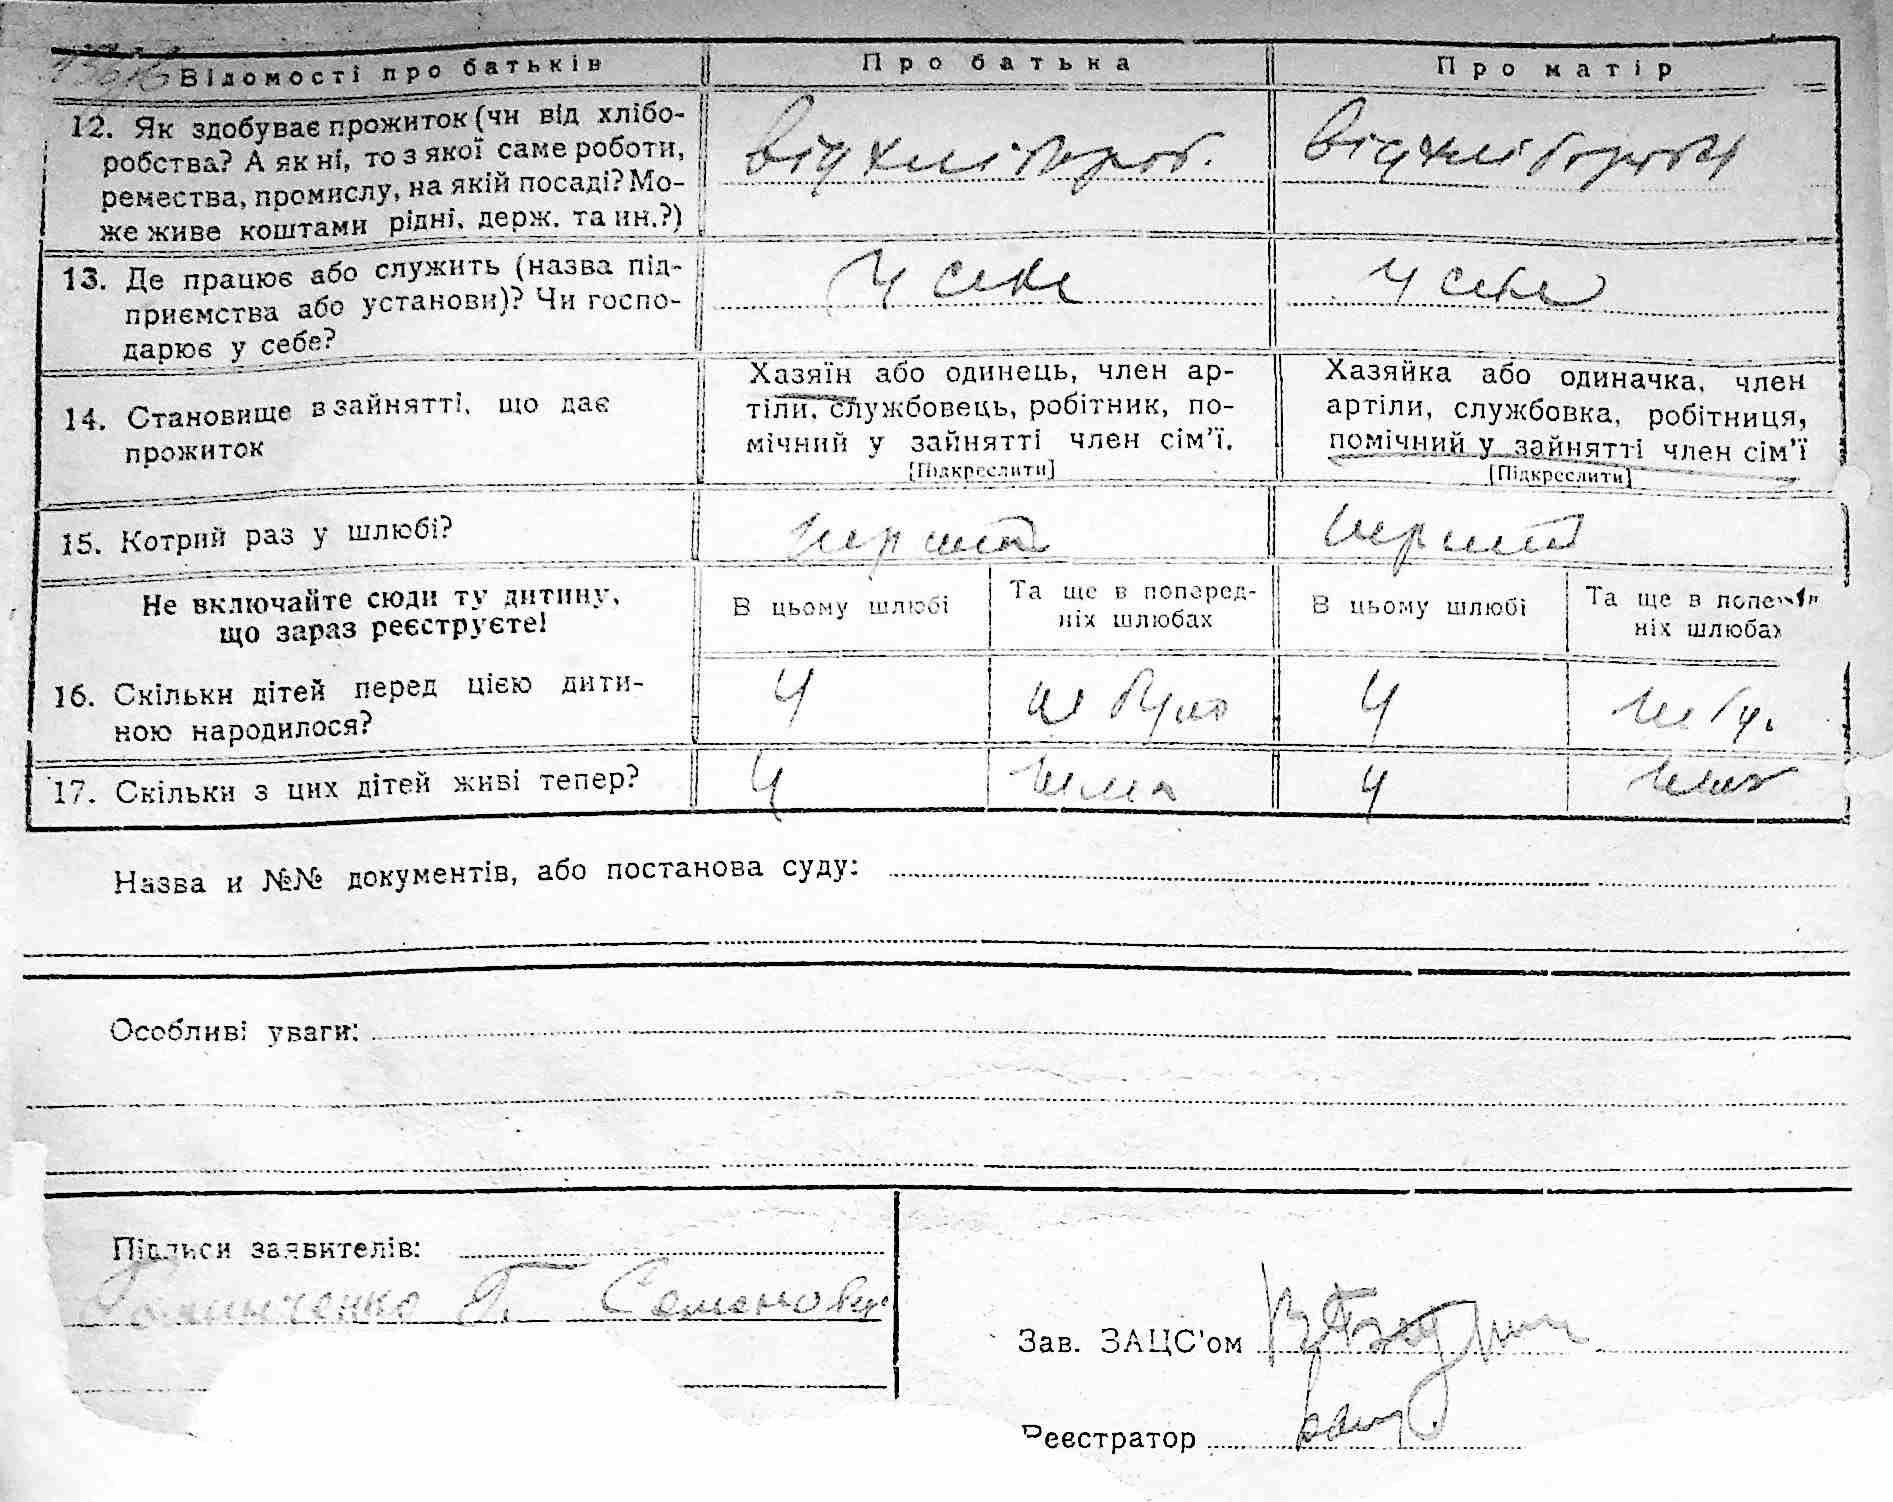 Відомості про батьків Про батька Про матір
12. Як здобуває прожиток (чи від хлібо-
робства? А як ні, то з якої саме роботи,
ремества, промислу, на якій посаді? Мо-
же живе коштами рідні, держ. та ин.?)
від хлібороб. від хлібороб
13. Де працює або служить (назва під-
приємства або установи)? Чи госпо-
дарює у себе?
у себе у себе
14. Становище в зайнятті, що дає
прожиток
Хазяїн або одинець, член ар-
тіли, службовець, робітник, по-
мічний у зайнятті член сім'ї.
[Підкреслити]
Хазяйка або одиначка, член
артіли, службовка, робітниця,
помічний у зайнятті член сім'ї
[Підкреслити]
15. Котрий раз у шлюбі?
перший перший
Не включайте сюди ту дитину,
що зараз реєструєте!
В цьому шлюбі
Та ще в поперед-
ніх шлюбах
В цьому шлюбі
Та ще в
ніх шлюбах
16. Скільки дітей перед цією дити-
ною народилося?
4 не було 4 не бу.
17. Скільки з цих дітей живі тепер?
4 нема 4 нема
Назва и №№ документів, або постанова суду:
Особливі уваги:
Підписи заявителів:
Семенову
Зав. ЗАЦС'ом
Реєстратор